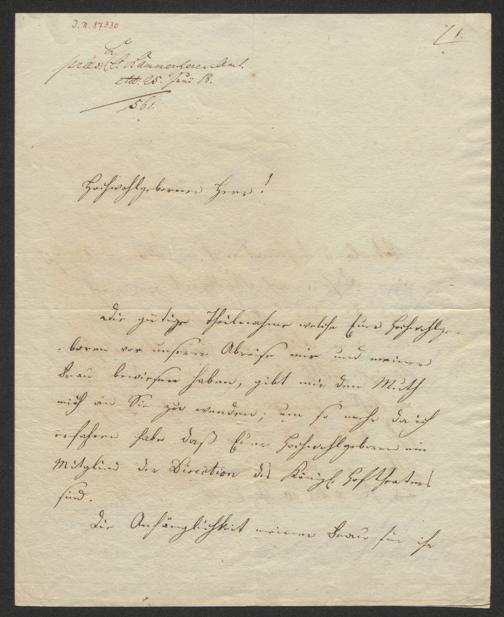 J.N. 87330
1.
561.
Hochwohlgeborner Herr!
Die gütige Theilnahme welche Euer Hochwohlge-
-boren vor unserer Abreise mir und meiner
Frau bewiesen haben, gibt mir den Muth
mich an Sie zu wenden; um so mehr da ich
erfahren habe daß Euer Hochwohlgeboren ein
Mitglied der Direction des Königl Hoftheaters
sind.
Die Anhänglichkeit meiner Frau für ihr